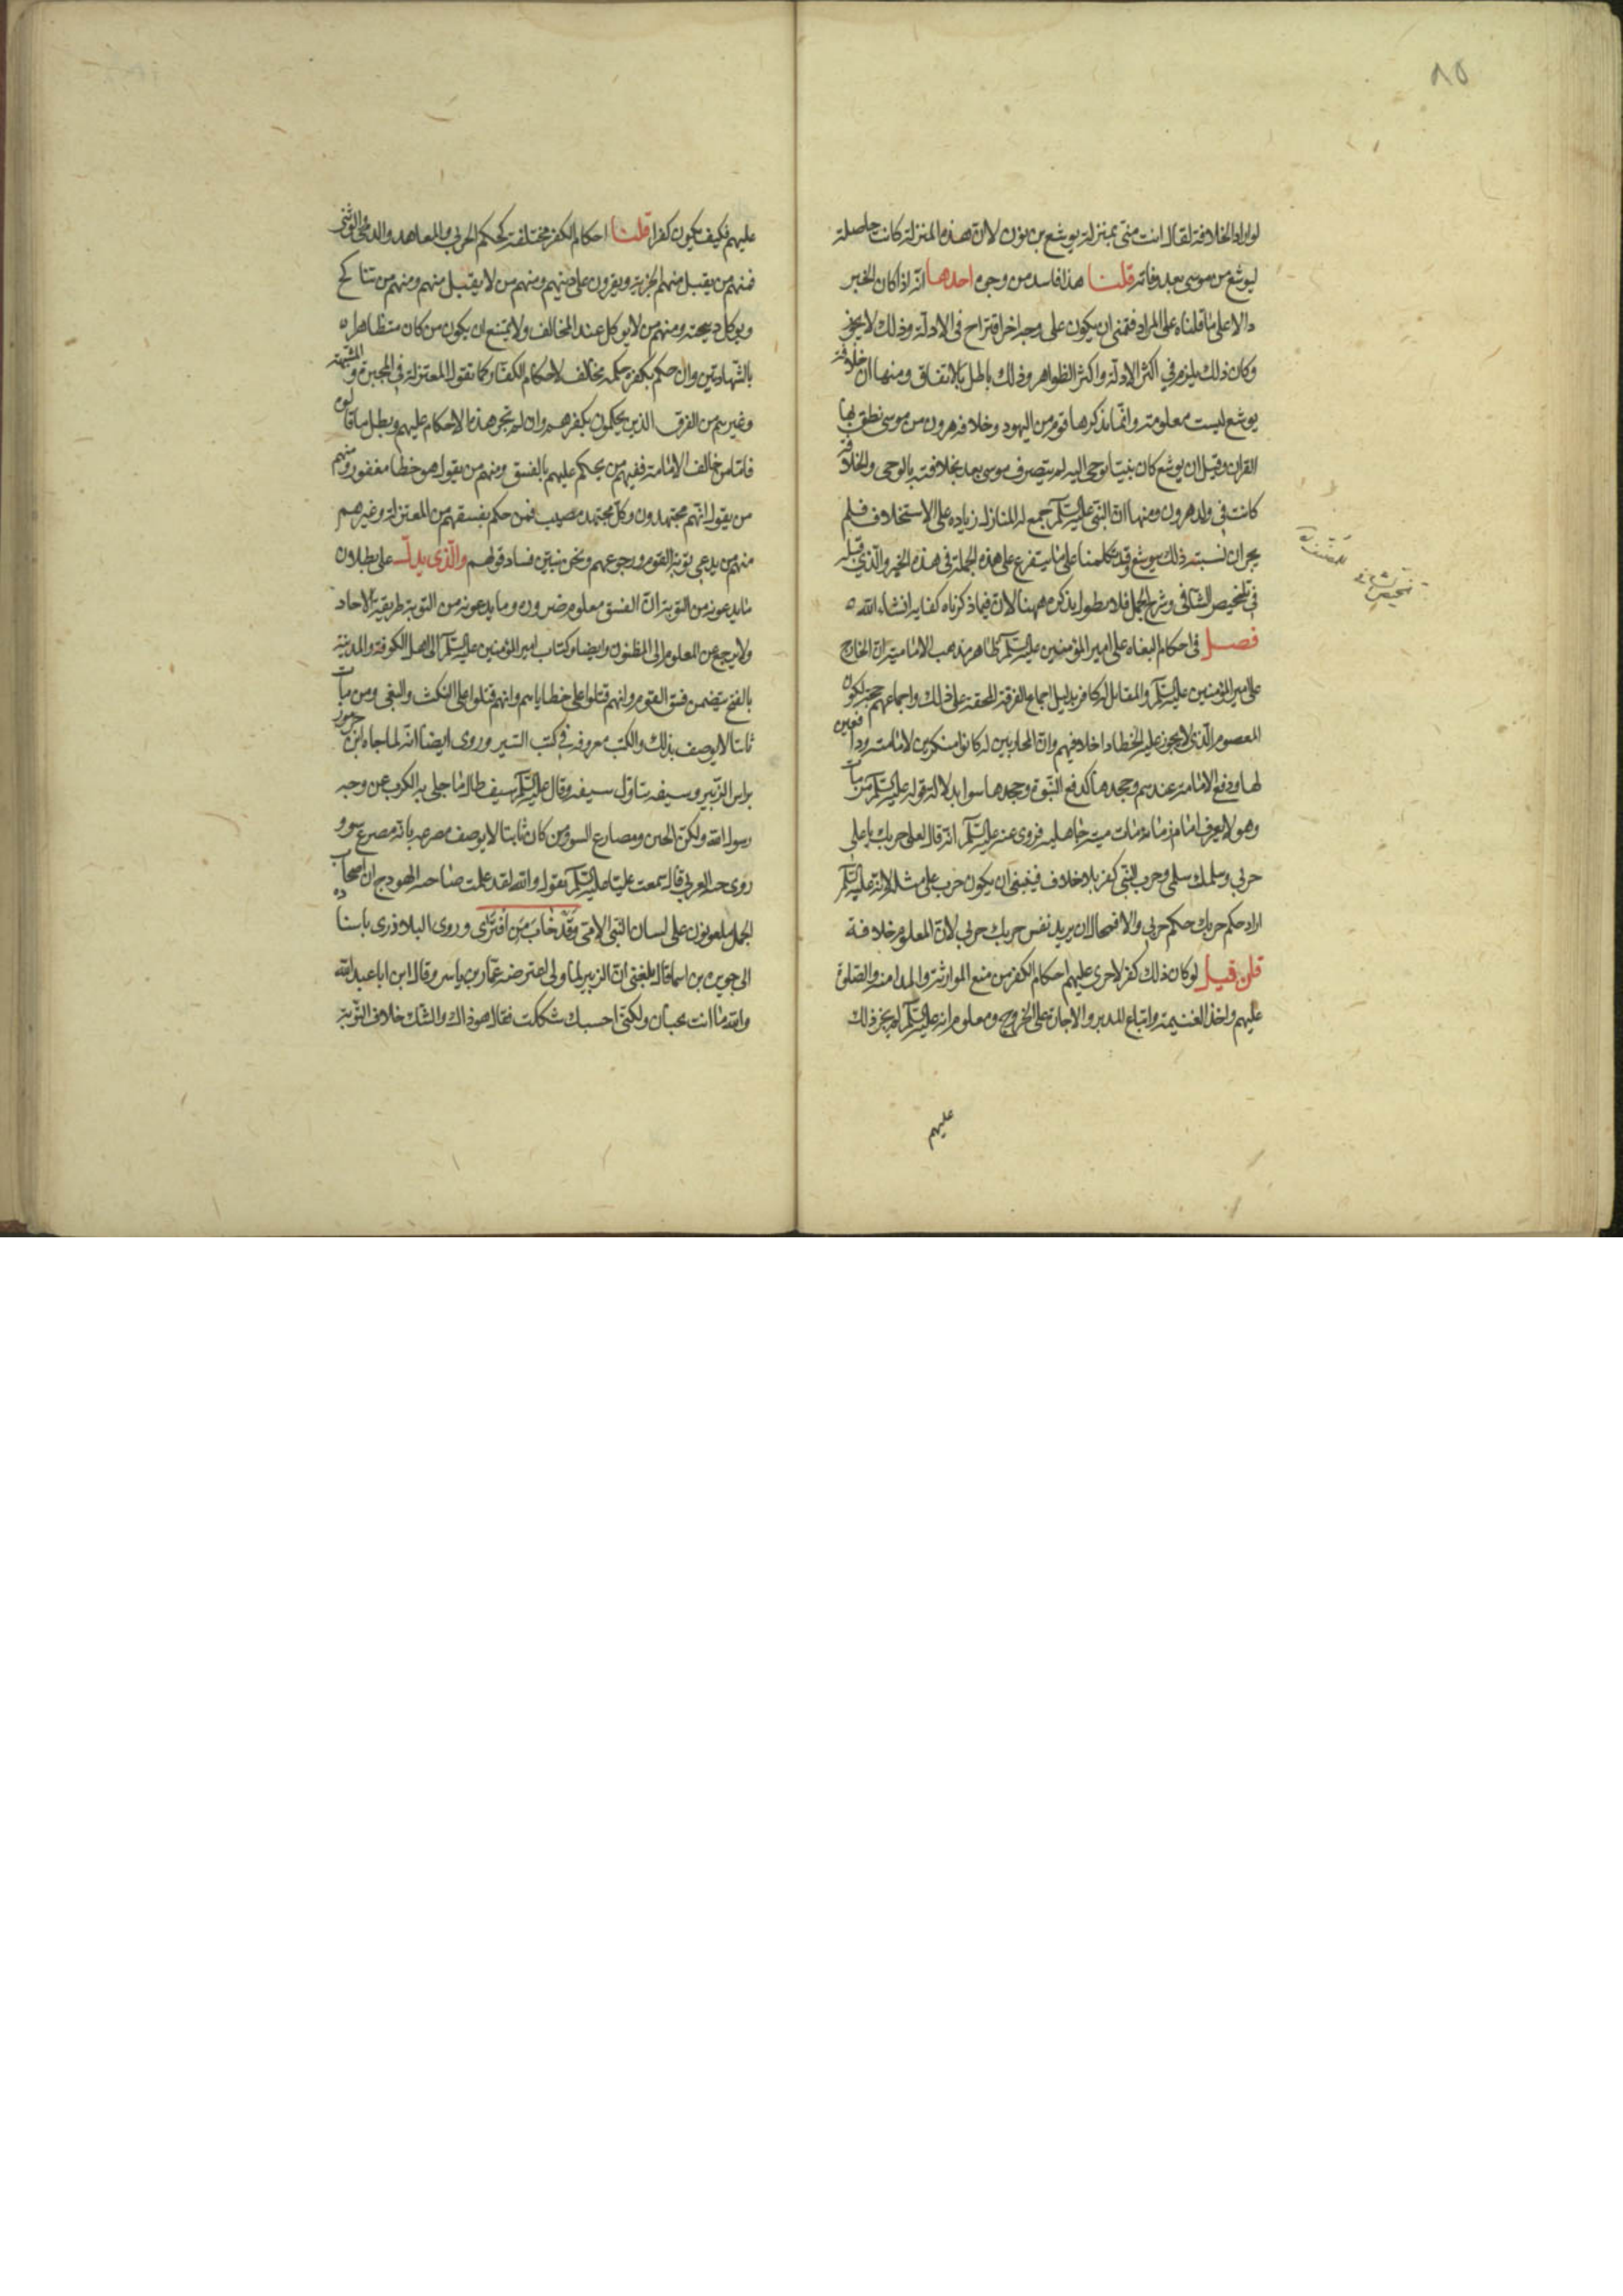 ٨٥
لو اراد الخلافة لقال انت منى بمنزلة يوشع بن نون لان هذه المنزلة كانت حاصلة
ليوشع من موسى بعد وفاته قلنا هذا فاسد من وجوه احدها انه اذا كان الخبر
دالا على ما قلناه على المراد فتمنى ان يكون على وجه اخر اقتراح فى الادلة وذلك لا يجوز
وكان ذلك يلزم في اكثر الادلة واكثر الظواهر وذلك باطل بالاتفاق ومنها ان خلافة
يوشع ليست معلومة وانما يذكرها قوم من اليهود وخلافة هرون من موسى نطق بها
القران وقيل ان يوشع كان نبيا يوحى اليه لم يتصرف موسى بعد بخلافته بالوحى والخلافة
كانت فى ولد هرون ومنها ان النبي عليه السلم جمع له المنازل زياده على الاستخلاف فلم
يجز ان نسبته ذلك بيوشع وقد تكلمنا على ما يتفرع على هذه الجملة فى هذه الخبر والذي قبله
في تلخيص الشافى وشرح الجمل فلا نطول بذكره ههنا لان فيما ذكرناه كفايه انشاء الله
فصل فى احكام البغاه على امير المؤمنين عليه السلم ظاهر مذهب الامامية ان الخارج
على امير المؤمنين عليه السلم والمقاتل له كافر بدليل اجماع الفرقة المحقة على ذلك واجماعهم حجة لكون
المعصوم الذى لا يجوز عليه الخطا داخلا فيهم وان المحاربين له كانوا منكرين لامامته ودافعين
لها ودفع الامامة عندهم وجحدها كدفع النبوة وجحدها سوا بدلالة قوله عليه السلم من مات
وهو لا يعرف امام زمانه مات ميتة جاهليه وروى عنه عليه السلم انه قال لعلى حربك يا على
حربي وسلمك سلمى وحرب النبى كفر بلا خلاف فينبغى ان يكون حرب على مثله لانه عليه السلم
اراد حكم حربك حكم حربي والا فمحال ان يريد نفس حربك حربي لان المعلوم خلافه
فان قيل لو كان ذلك كفرا لاجرى عليهم احكام الكفر من منع الموارثة والمدافنة والصلوة
عليهم واخذ الغنيمة واتباع المدبر والاجازة على الجروح ومعلوم انه عليه السلم لم يجز ذلك
عليهم
تلخيص شافى
للمصنف ره
عليهم فكيف يكون كفرا قلنا احكام الكفر مختلفة كحكم الحربي والمعاهد والذمى والوثنى
فمنهم من يقبل منهم الجزية ويقرون على دينهم ومنهم من لا يقبل منهم ومنهم من تناكح
ويوكل ذبيحته ومنهم من لا يوكل عند المخالف ولا يمتنع ان يكون من كان متظاهرا
بالشهادتين وان حكم بكفره حكمه مخالف لاحكام الكفار كما تقول المعتزلة في المجبرة والمشبهة
وغيرهم من الفرق الذين يحكمون بكفرهم وان لم تجر هذه الاحكام عليهم وبطل ما قالوه
فاما من خالف الامامة ففيهم من يحكم عليهم بالفسق ومنهم من يقول هو خطا مغفور ومنهم
من يقول انهم مجتهدون وكل مجتهد مصيب فمن حكم بفسقهم من المعتزلة وغيرهم
منهم من يدعى توبة القوم ورجوعهم ونحن نبين فساد قولهم والذى يدل على بطلان
ما يدعونه من التوبة ان الفسق معلوم ضرورة وما يدعونه من التوبة طريقه الاحاد
ولا يرجع من المعلوم الى المظنون وايضا وكتاب امير المؤمنين عليه السلم الى اهل الكوفة والمدينة
بالفتح يتضمن فسق القوم وانهم قتلوا على خطاياهم وانهم قتلوا على النكث والبغى ومن مات
تائبا لا يوصف بذلك والكتب معروفة في كتب السير وروى ايضا انه لما جاه ابن جرموز
براس الزبير وسيفه تناول سيفه وقال عليه السلم سيف طال ما جلى به الكرب عن وجه
رسول الله ولكن الحين ومصارع السو ومن كان تائبا لا يوصف مصرعه بانه مصرع سوء
روى حبه العربي قال سمعت عليا عليه السلم يقول والله لقد علمت صاحبه الهودج ان اصحاب
الجمل ملعونون على لسان النبى الامى وقد خاب من افترى وروى البلاذرى باسناده
الى جويريه بن اسما قال بلغنى ان الزبير لما ولى اعترضه عمار بن ياسر وقال اين ابا عبد الله
والله ما انت بجبان ولكنى احسبك شككت فقال هو ذاك والشك خلاف التوبة